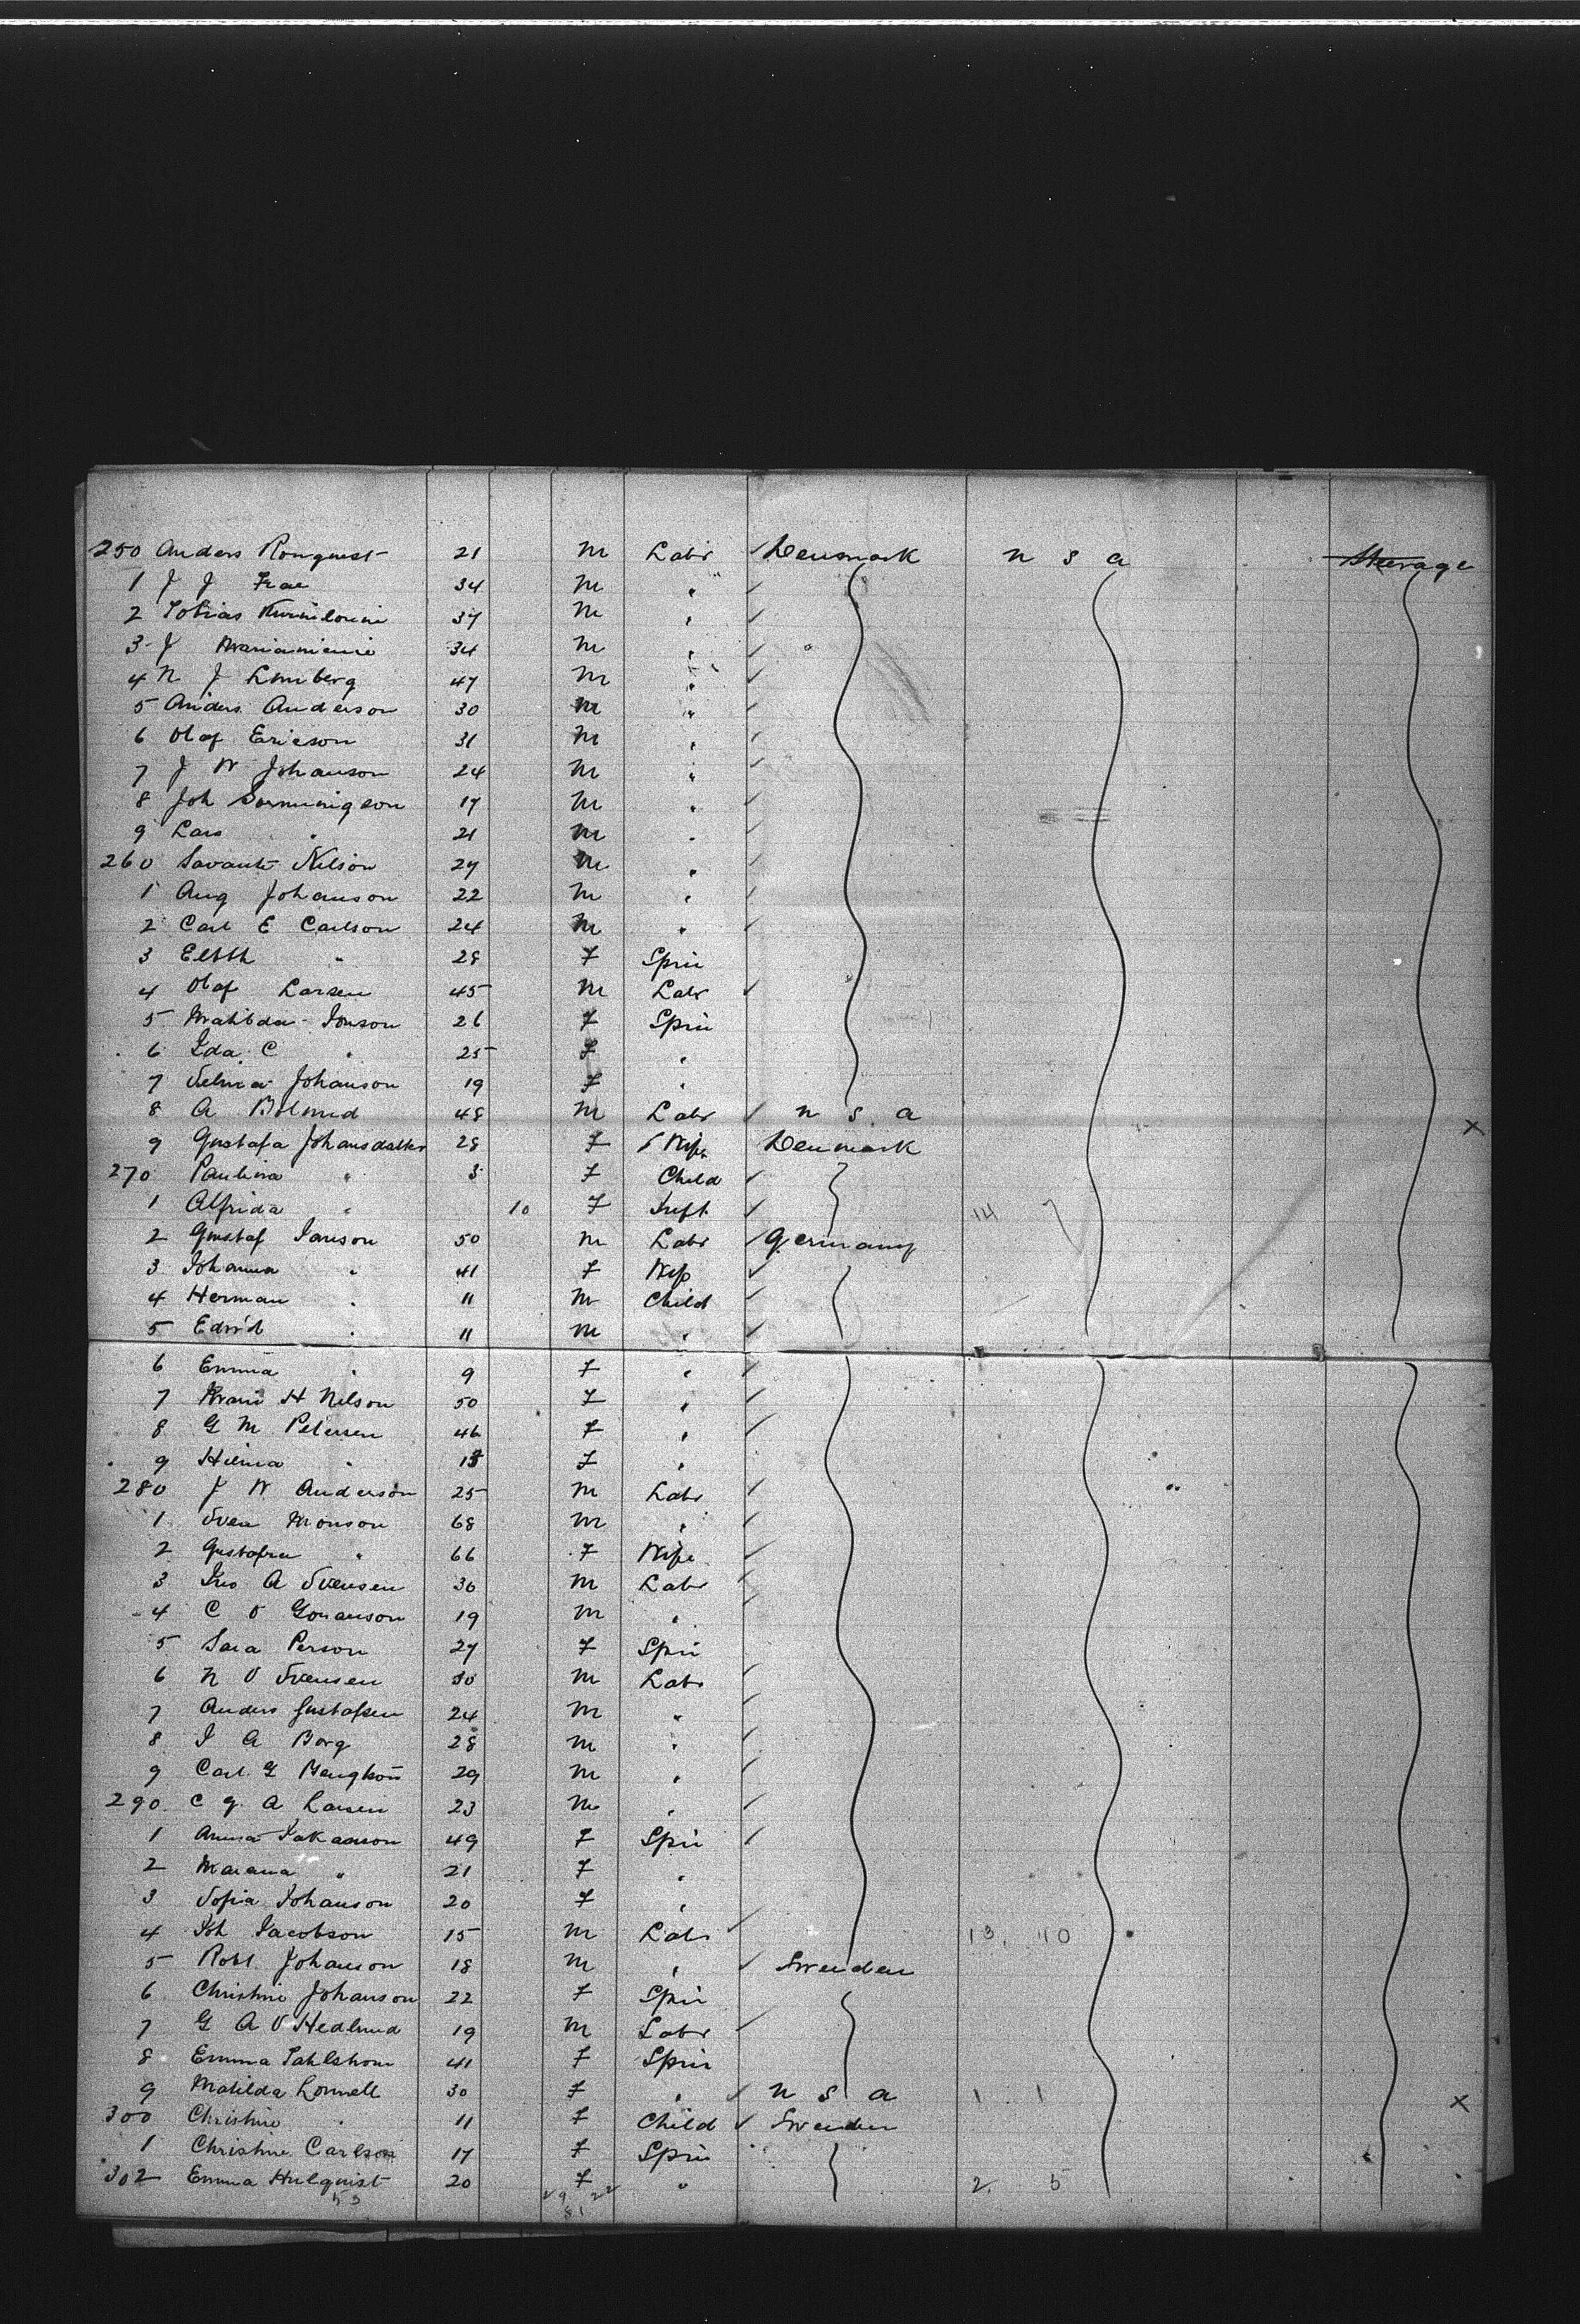 250 Anders Ronquist 21 m Labr Denmark n s a Steerage
1 J J Frae 34 m "
2 Tobias 37 m "
3 J 34 m "
4 N J Limberg 47 m "
5 Anders Anderson 30 m "
6 Olof Ericson 31 m "
7 J W Johanson 24 m "
8 Joh 17 m "
9 Lars " 21 m "
260 Savante Nilson 27 m "
1 Aug Johanson 22 m "
2 Carl E Carlson 24 m "
3 Elbth " 28 F Spin
4 Olof Larsen 45 m Labr
5 Matilda Jonson 26 F Spin
6 Ida C " 25 F "
7 Selma Johanson 19 F "
8 A Bolmud 48 m Labr n s a x
9 Gustafa Johansdatter 28 F Wife Denmark
270 Paulina " 3 F Child
1 Alfrida " 10 F Inft 14 7
2 Gustaf Janson 50 m Labr Germany
3 Johanna " 41 F Wife
4 Herman " 11 m Child
5 Edvid " 11 m "
6 Emma " 9 F "
7 H Nelson 50 F "
8 G M Petersen 46 F "
9 Hilma " F "
280 J W Anderson 25 m Labr
1 Sven Monson 68 m "
2 Gustafva " 66 F Wife
3 Jno A Svensen 30 m Labr
4 C O Gonanson 19 m "
5 Sara Person 27 F Spin
6 N O Svensen 30 m Labr
7 Anders Gustafsen 24 m "
8 J A Borg 28 m "
9 Carl G 29 m "
290 C G A Larsen 23 m "
1 Anna 49 F Spin
2 Marana " 21 F "
3 Sofia Johanson 20 F "
4 Joh Jacobson 15 m Labr 13 10
5 Robt Johanson 18 m " Sweden
6 Christine Johanson 22 F Spin
7 G A O Hedlund 19 m Labr
8 Emma 41 F Spin
9 Matilda Lonnell 30 F " n s a 1 1 x
300 Christine " 11 F Child Sweden
1 Christine Carlson 17 F Spin
302 Emma Hulquist 20 F " 2 5
53 29 22